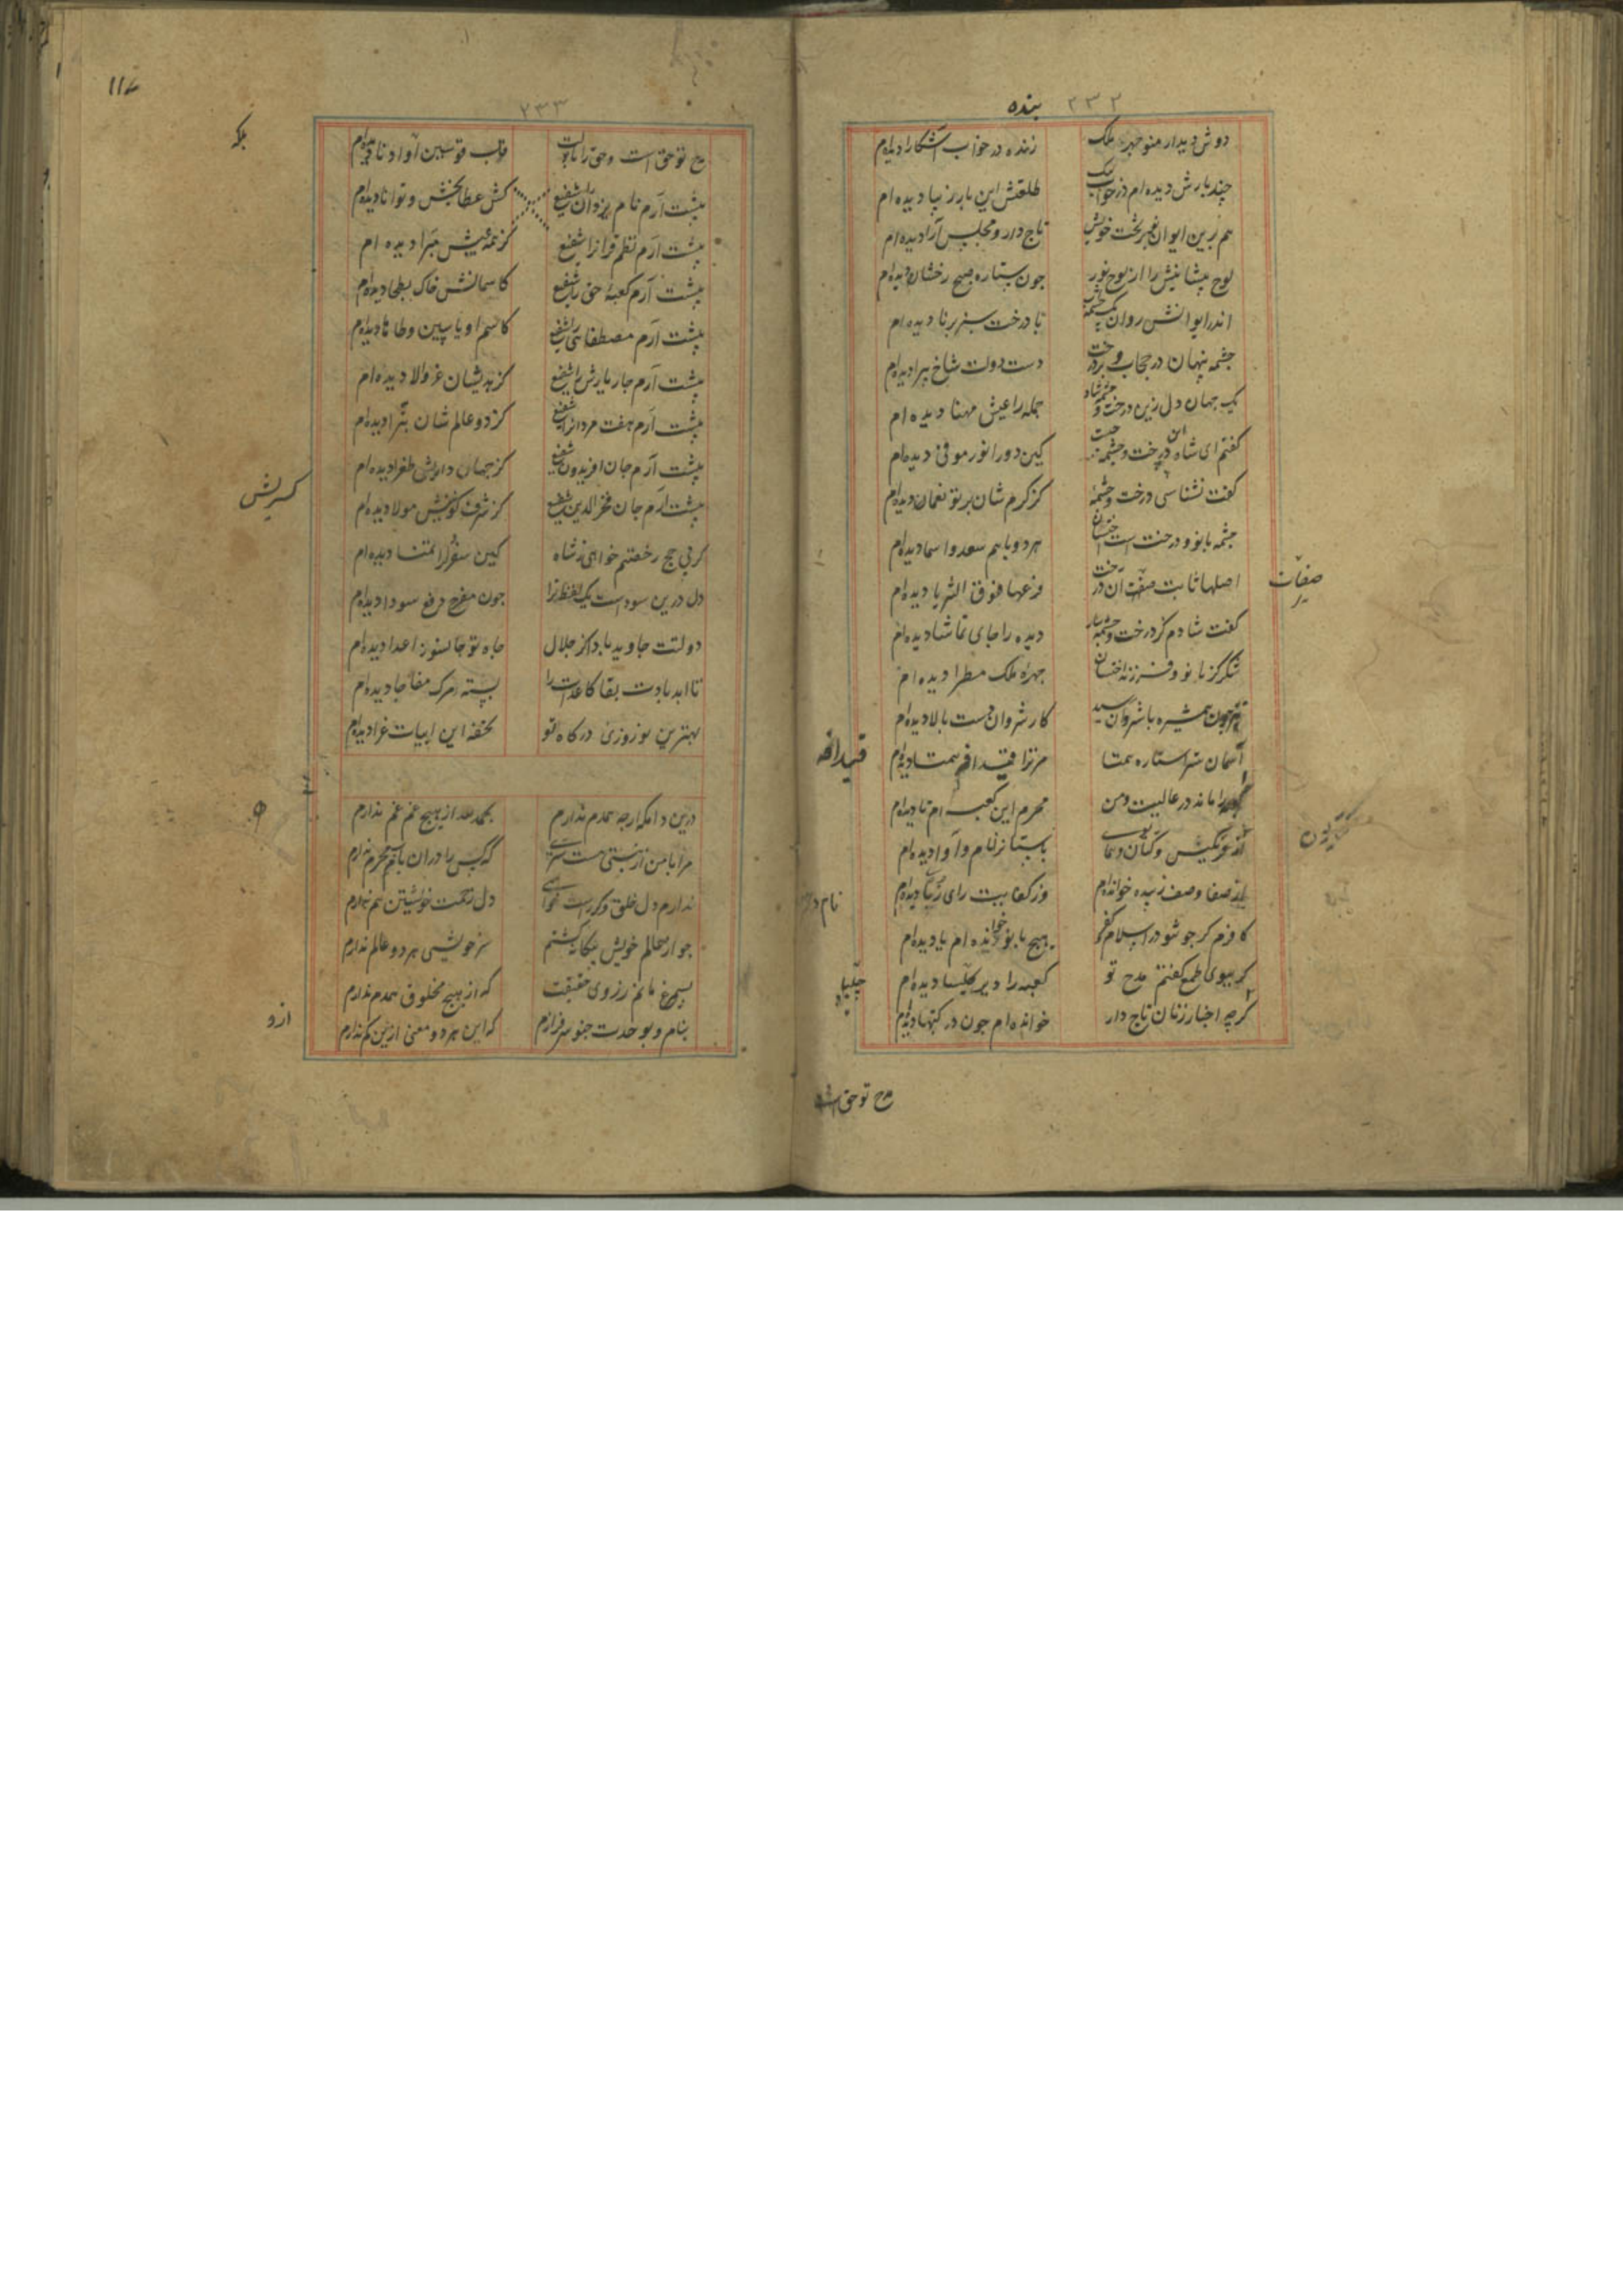 ۲۳۲
بنده
دوش دیدار منوچهر ملک
زنده در خواب آشکارا دیده‌ام
چند بارش دیده‌ام در خواب
طلعتش این بار زیبا دیده‌ام
هم زرین ایوان بر تخت خویش
تاج دار و مجلس آرا دیده‌ام
لوح پیشانیش را از نور
چون ستاره صبح رخشان دیده‌ام
اندر ایوانش روان یک چشمه
با درخت سبز برنا دیده‌ام
چشمه پنهان در حجاب و بر درخت
دست دولت شاخ پیرا دیده‌ام
یک جهان دل زین درخت و چشمه شاد
جمله را عیش مهنا دیده‌ام
گفتم ای شاه این درخت و چشمه چیست
کین دو را نور موفی دیده‌ام
گفت نشناسی درخت و چشمه
کز کرم شان بر تو نعمان دیده‌ام
چشمه بانو و درخت است اخستان
هر دو با هم سعد و اسما دیده‌ام
اصلها ثابت صفت آن درخت
فرعها فوق الثریا دیده‌ام
صفات
گفت شادم کز درخت و چشمه
دیده را جای تماشا دیده‌ام
شکر کز بانو و فرزند اخستان
چهره ملک مطرا دیده‌ام
چون همشیره با شروان رسید
کار شروان دست بالا دیده‌ام
آسمان ستر ستاره همتا
مر ترا قیدافه همت دیده‌ام
قیدافه
را ماند در عالیت و من
محرم این کعبه‌ام تا دیده‌ام
از فرنگیس و کتایون و همای
باستانرا نام و آوا دیده‌ام
کتایون
از صفا وصف زبیده خوانده‌ام
وز کفایت رای زبا دیده‌ام
کافرم گر چو تو در اسلام کفو
هیچ بانو خوانده‌ام یا دیده‌ام
گر ببوی طمع گفتم مدح تو
کعبه را دیر کلیسا دیده‌ام
چلیپا
گرچه اخبار زنان تاج دار
خوانده‌ام چون در کتبها دیده‌ام
مدح تو حق است
۲۳۳
مدح تو حق است و حق را با تو
قاب قوسین آوادنا دیده‌ام
پیشت آرم نام یزدان را شفیع
کش عطا بخش و توانا دیده‌ام
پیشت آرم نظم قرآن را شفیع
کز همه عیبش مبرا دیده‌ام
پیشت آرم کعبه حق را شفیع
کاسمانش خاک بطحا دیده‌ام
پیشت آرم مصطفا را شفیع
کاسم او یاسین و طاها دیده‌ام
پیشت آرم چار یارش را شفیع
کز هدیشان عز و الا دیده‌ام
پیشت آرم هفت مردان را شفیع
کز دو عالم شان تبرا دیده‌ام
پیشت آرم جان افریدون شفیع
کز جهان داریش طغرا دیده‌ام
پیشت آرم جان فخر الدین شفیع
کز شرف کسریش مولا دیده‌ام
کسریش
کز پی حج رخصتم خواهی ز شاه
کین سفر را متمنا دیده‌ام
دل درین سوداست یک لفظ ترا
چون مفرح دفع سودا دیده‌ام
دولتت جاوید بادا کز جلال
جاه تو جانسوز اعدا دیده‌ام
تا ابد بادت بقا کاعدات را
بسته مرگ مفاجا دیده‌ام
بهترین نوروزی درگاه تو
تحفه این ابیات غرا دیده‌ام
درین دامگه ارچه همدم ندارم
بحمد الله از هیچ غم غم ندارم
مرا با من از نیستی هست سری
که کس را در آن باب محرم ندارم
ندارم دل خلق و گر راست خواهی
دل زحمت خویشتن هم ندارم
چو از عالم خویش بیگانه گشتم
سر خویشی هر دو عالم ندارم
بسیمرغ مانم ز روی حقیقت
که از هیچ مخلوق همدم ندارم
بنام و بوحدت چنو سر فرازم
که این هر دو معنی ازین کم ندارم
ازو